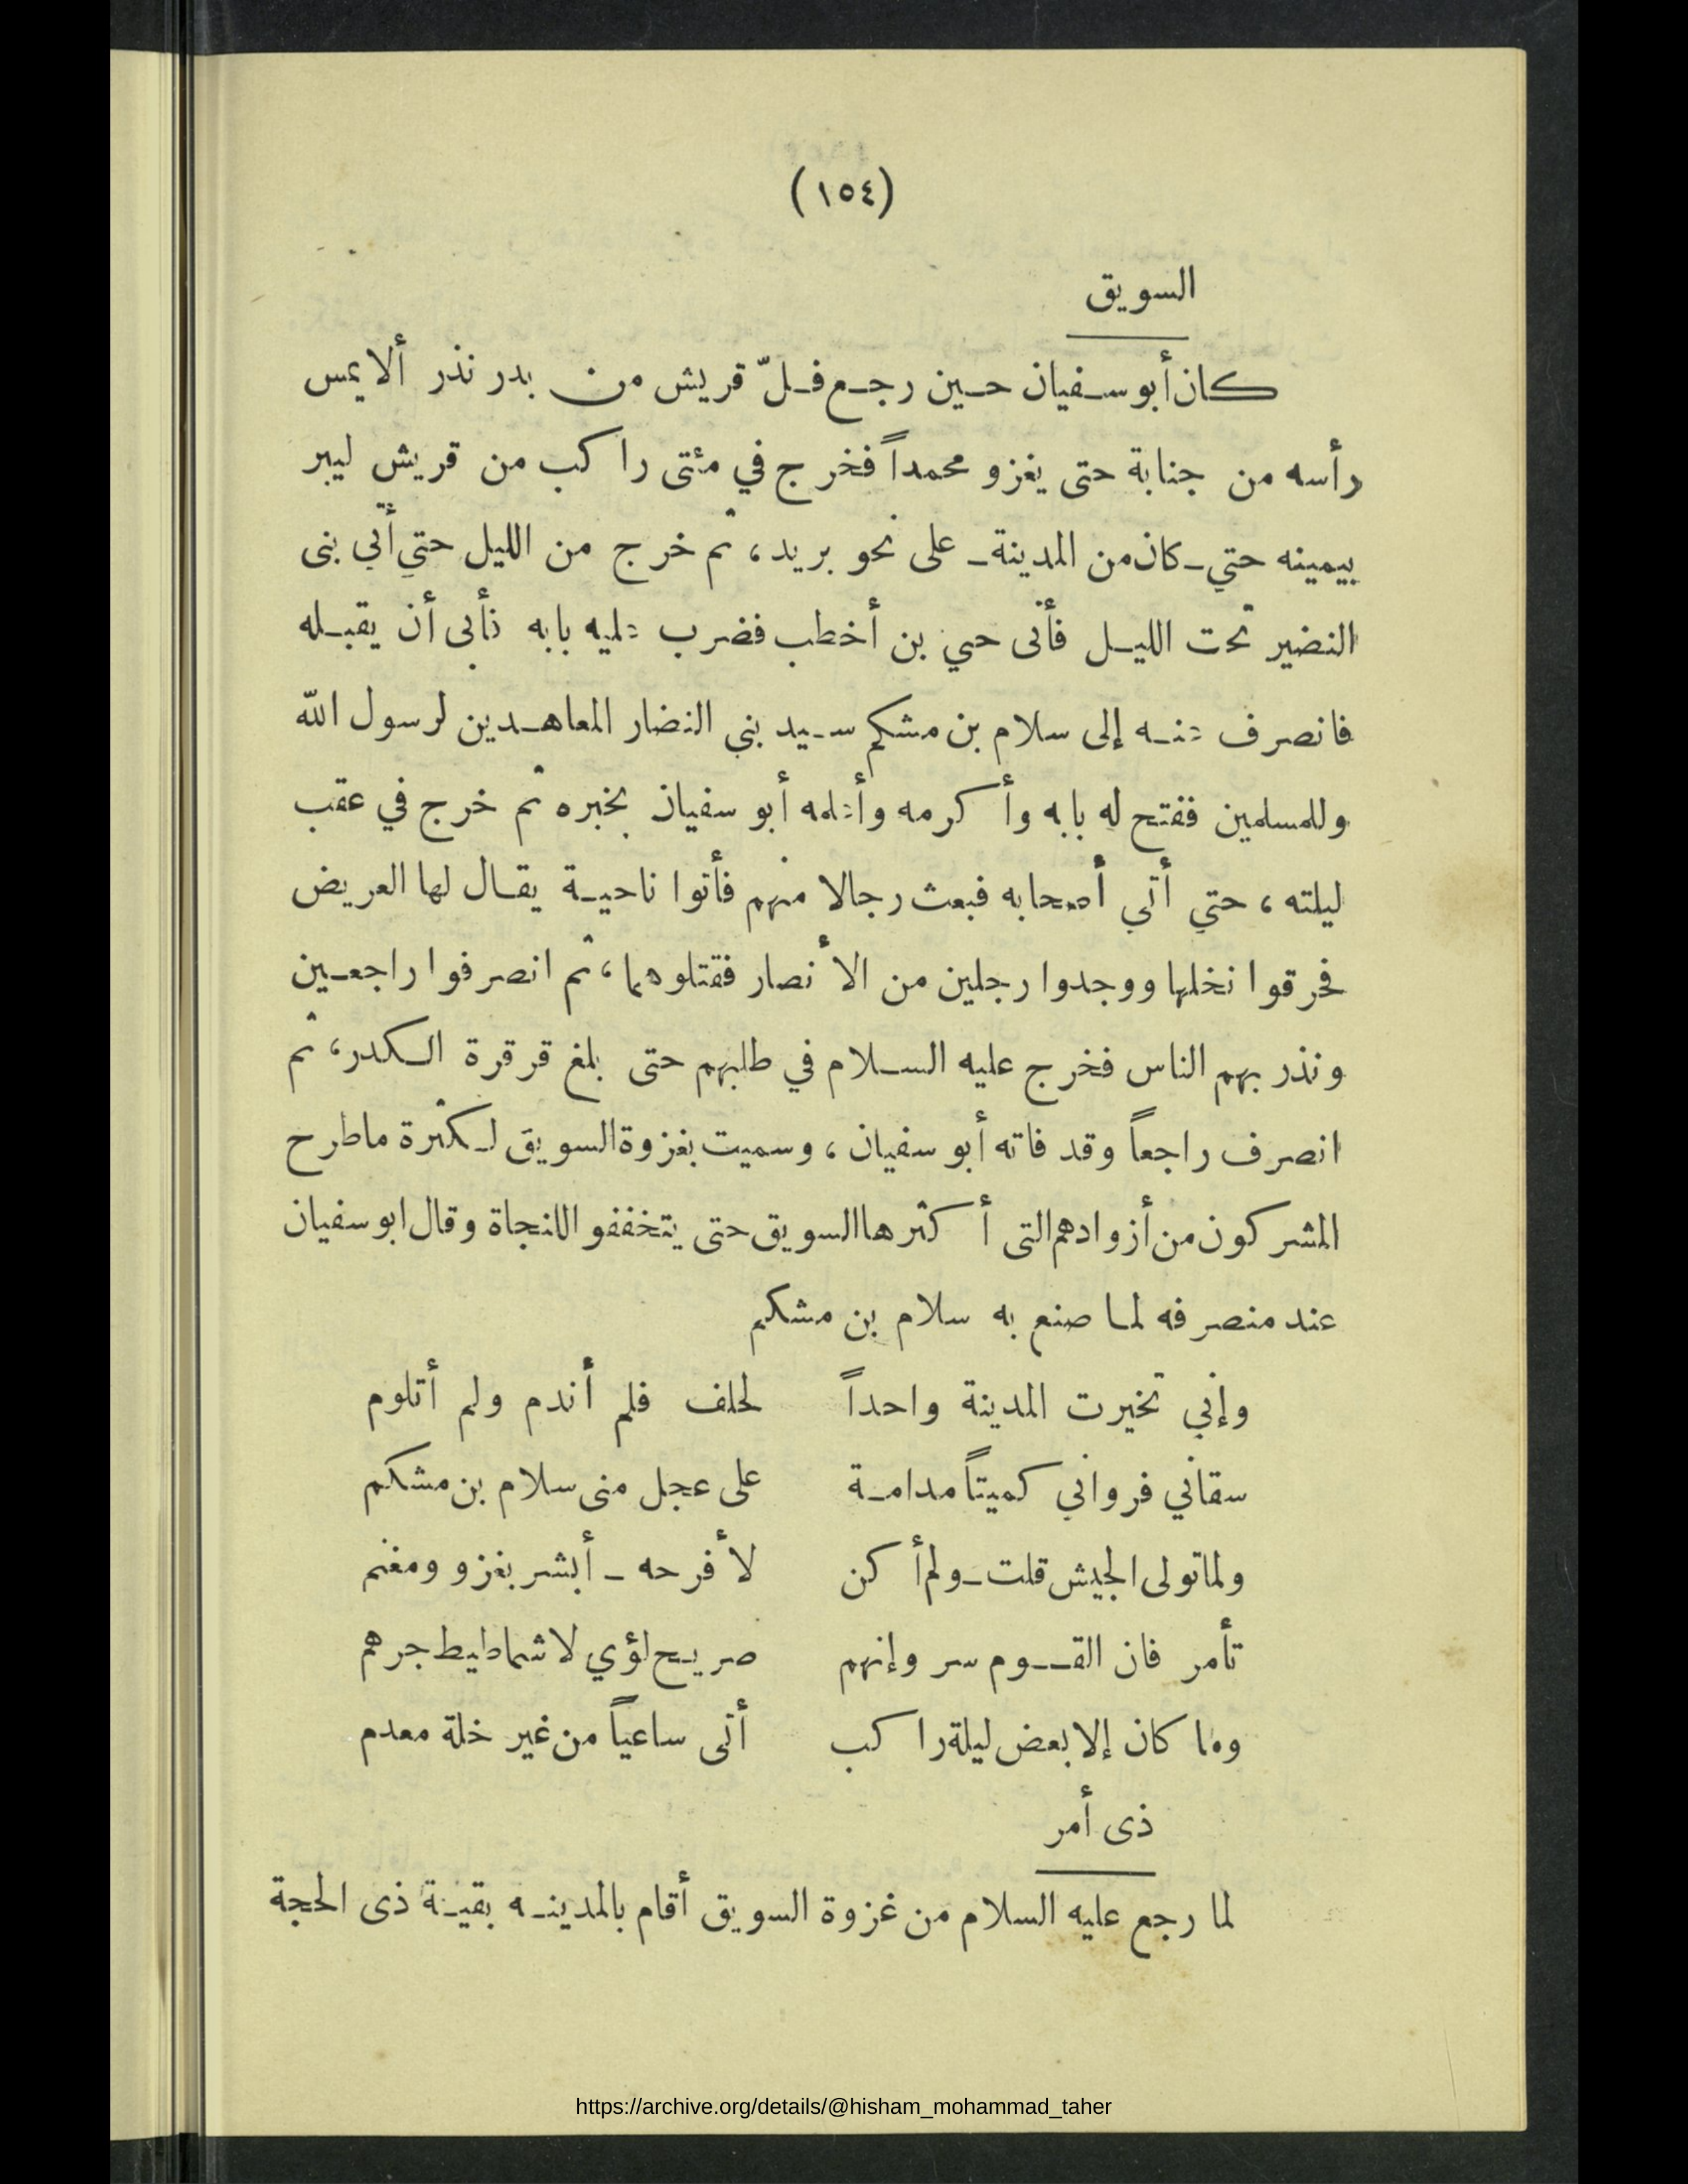 (١٥٤)
السويق
كان أبو سفيان حين رجع فلّ قريش من بدر نذر ألا يمس
رأسه من جنابة حتى يغزو محمداً فخرج في مئتى راكب من قريش ليبر
بيمينه حتي ـ كان من المدينة ـ على نحو بريد، ثم خرج من الليل حتي أتي بنى
النضير تحت الليل فأتى حيي بن أخطب فضرب عليه بابه فأبى أن يقبله
فانصرف عنه إلى سلام بن مشكم سيد بني النضار المعاهدين لرسول الله
وللمسلمين ففتح له بابه وأكرمه وأعلمه أبو سفيان بخبره ثم خرج في عقب
ليلته، حتي أتي أصحابه فبعث رجالا منهم فأتوا ناحية يقال لها العريض
فحرقوا نخلها ووجدوا رجلين من الأنصار فقتلوهما، ثم انصرفوا راجعين
ونذر بهم الناس فخرج عليه السلام في طلبهم حتى بلغ قرقرة الكدر، ثم
انصرف راجعاً وقد فاته أبو سفيان، وسميت بغزوة السويق لكثرة ما طرح
المشركون من أزوادهم التى أكثرها السويق حتى يتخففو اللنجاة وقال ابو سفيان
عند منصرفه لما صنع به سلام بن مشكم
وإني تخيرت المدينة واحداً لحلف فلم أندم ولم أتلوم
سقاني فرواني كميتاً مدامة على عجل منى سلام بن مشكم
ولما تولى الجيش قلت ـ ولم أكن لأفرحه ـ أبشر بغزو ومغنم
تأمر فان القوم سر وإنهم صريح لؤي لا شماطيط جرهم
وما كان إلا بعض ليلة راكب أتى ساعياً من غير خلة معدم
ذى أمر
لما رجع عليه السلام من غزوة السويق أقام بالمدينه بقية ذى الحجة
https://archive.org/details/@hisham_mohammad_taher